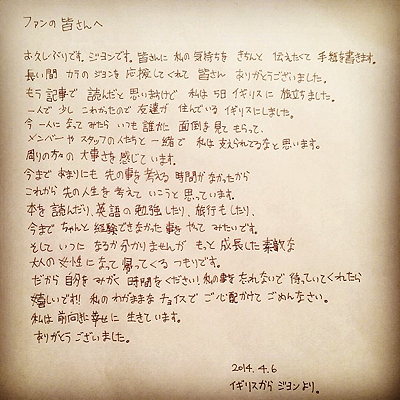 ファンの皆さんへ
お久しぶりです。ジヨンです。皆さんに私の気持ちをきちんと伝えたくて手紙を書きます。
長い間カラのジヨンを応援してくれて皆さんありがとうございました。
もう記事で読んだと思いますけど私は5日イギリスに旅立ちました。
一人で少しこわかったので友達が住んでいるイギリスにしました。
今一人になってみたらいつも誰かに面倒を見てもらって、
メンバーやスタッフの人たちと一緒で私は支えられてるなと思います。
周りの方々の大事さを感じています。
今まであまりにも先の事を考える時間がなかったから
これから先の人生を考えていこうと思っています。
本を読んだり、英語の勉強したり、旅行もしたり、
今までちゃんと経験できなかった事をやってみたいです。
そしていつになるか分かりませんがもっと成長した素敵な
大人の女性になって帰ってくるつもりです。
だから自分をみがく時間をください!私の事を忘れないで待っていてくれたら
嬉しいです!!私のわがままなチョイスでご心配かけてごめんなさい。
私は前向きに幸せに生きています。
ありがとうございました。
2014.4.6
イギリスからジヨンより。